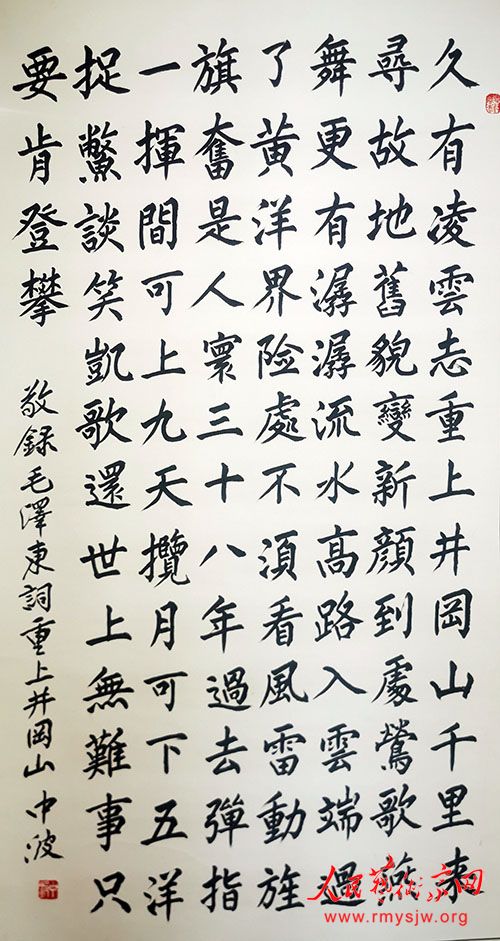 久有凌雲志重上井岡山千里來
尋故地舊貌變新顏到處鶯歌燕
舞更有潺潺流水高路入雲端過
了黄洋界险處不須看風雷動旌
旗奮是人寰三十八年過去彈指
一揮間可上九天攬月可下五洋
捉鱉談笑凱歌還世上無難事只
要肯登攀
敬錄毛澤東詞重上井岡山 中波
人民艺术家网
www.rmysjw.org